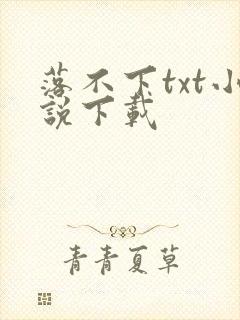 落不下txt小
説下載
青青夏草